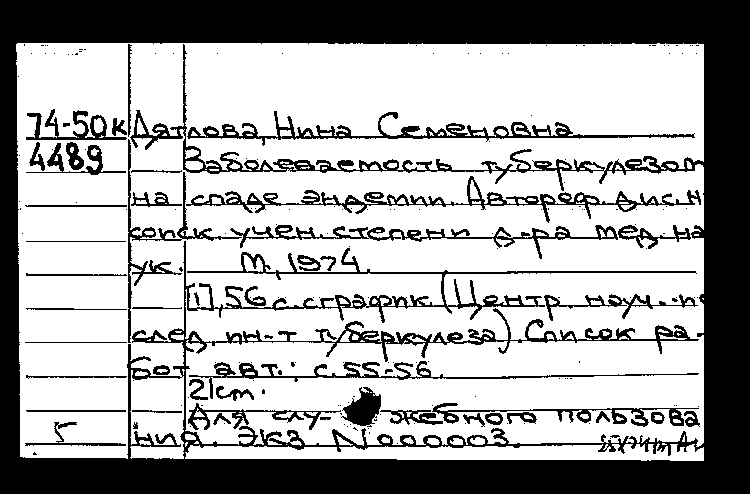 74-50к Дятлова, Нина Семеновна
4489 Заболеваемость туберкулезом
на спаде эндемии. Автореф. дис. н
соиск. учен. степени д-ра мед. на
ук. М., 1974.
[1], 56 с. с график. (Центр. науч.-и
след. ин-т туберкулеза). Список ра-
бот авт.: с. 55-56.
21cm.
Для слу- жебного пользова
5 ния. Экз N000003.